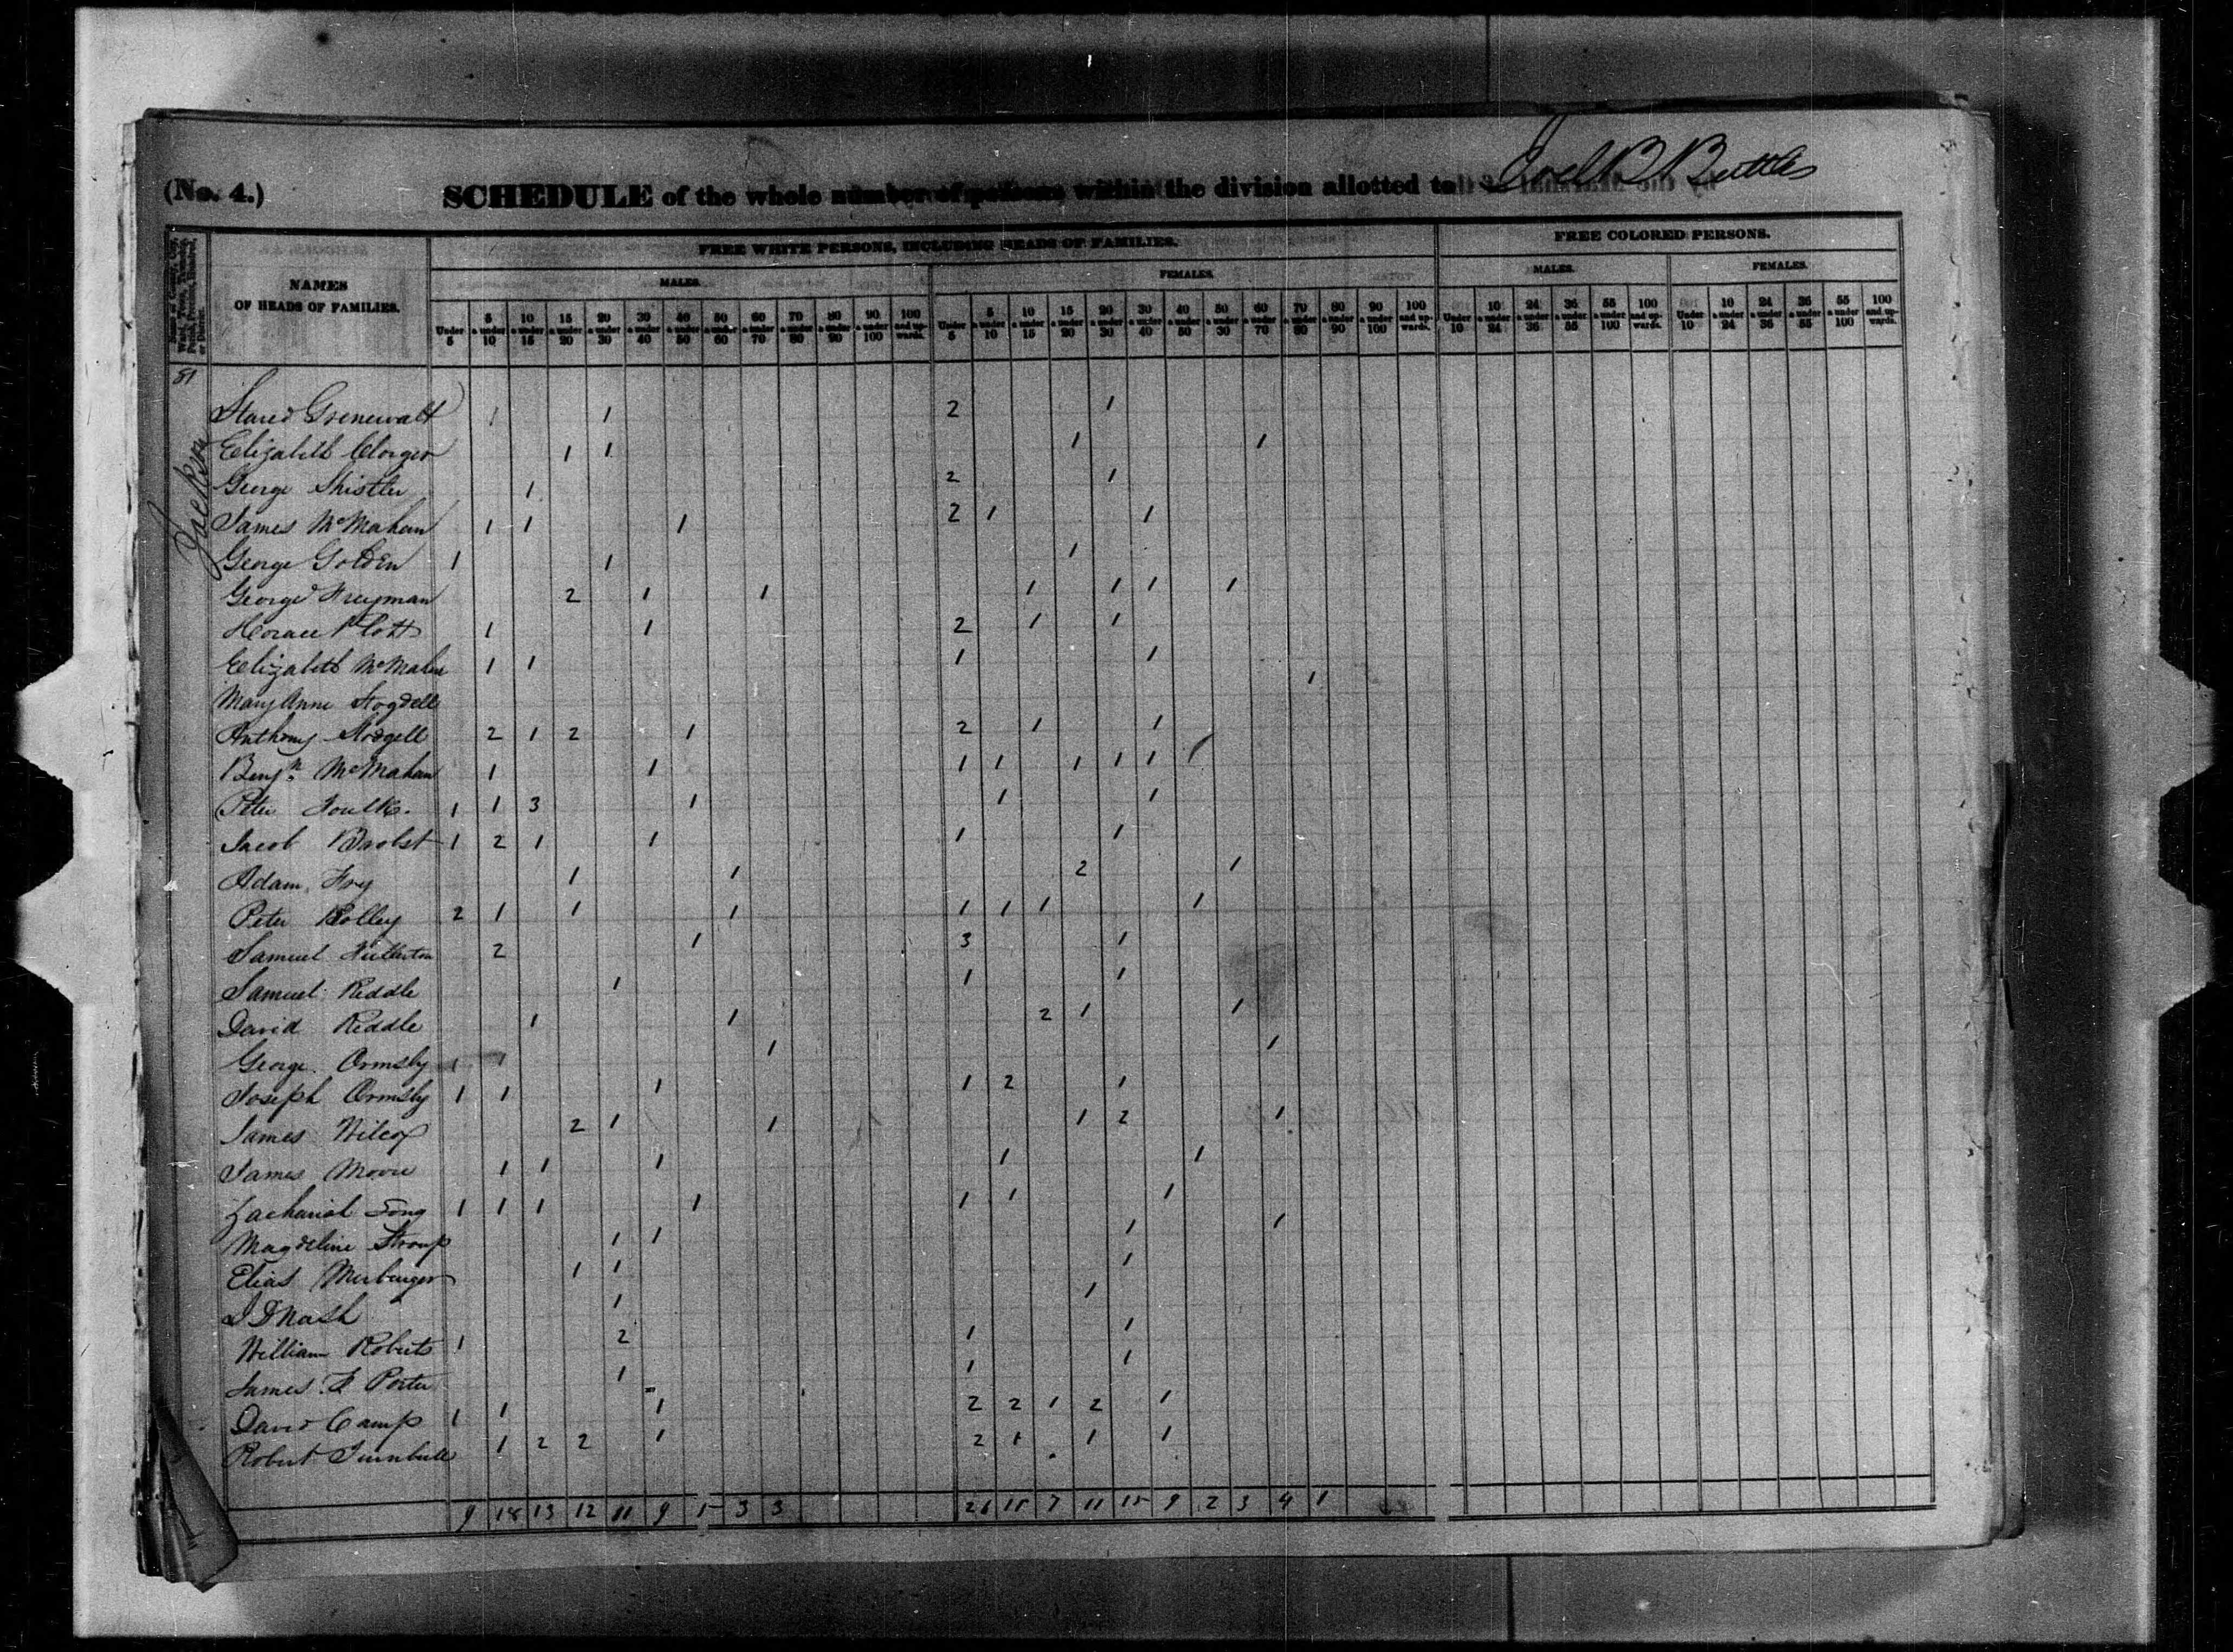 (No. 4.) SCHEDULE of the whole number of persons within the division allotted to Joel B Buttles
Name of County, City, Ward, Town, Township, Parish, Precinct, Hundred, or District.
NAMES OF HEADS OF FAMILIES.
FREE WHITE PERSONS, INCLUDING HEADS OF FAMILIES.
FREE COLORED PERSONS.
MALES. FEMALES. MALES. FEMALES.
Under 5 | 5 a under 10 | 10 a under 15 | 15 a under 20 | 20 a under 30 | 30 a under 40 | 40 a under 50 | 50 a under 60 | 60 a under 70 | 70 a under 80 | 80 a under 90 | 90 a under 100 | 100 and upwards. | Under 5 | 5 a under 10 | 10 a under 15 | 15 a under 20 | 20 a under 30 | 30 a under 40 | 40 a under 50 | 50 a under 30 | 60 a under 70 | 70 a under 80 | 80 a under 90 | 90 a under 100 | 100 and upwards. | Under 10 | 10 a under 24 | 24 a under 36 | 36 a under 55 | 55 a under 100 | 100 and upwards. | Under 10 | 10 a under 24 | 24 a under 36 | 36 a under 55 | 55 a under 100 | 100 and upwards.
81
Jackson
Grenewalt 1 1 2 1
Elizabeth 1 1 1 1
George Shistler 1 2 1
James McMahan 1 1 1 2 1 1
George Golden 1 1 1
George Freyman 2 1 1 1 1 1 1
Horace Plott 1 1 2 1 1
Elizabeth McMahan 1 1 1 1
Mary Anne Stogdell 1
Anthony Stodgell 2 1 2 1 2 1 1
Benjn. McMahan 1 1 1 1 1 1 1
Peter Foulk. 1 1 3 1 1 1
Jacob Brobst 1 2 1 1 1 1
Adam Fry 1 1 2 1
Peter Bolley 2 1 1 1 1 1 1 1
Samuel 2 1 3 1
Samuel Riddle 1 1 1
David Riddle 1 1 2 1 1
George Ormsby 1 1 1 1
Joseph Ormsby 1 1 1 1 2 1
James Wilcox 2 1 1 1 2 1
James Moore 1 1 1 1 1
Zachariah Long 1 1 1 1 1 1 1
Magdeline Stroup 1 1 1 1
Elias 1 1 1
Nash 1 1
William Roberts 1 2 1 1
James F Porter 1 1 1
David Camp 1 1 1 2 2 1 2 1
Robert Turnbull 1 2 2 1 2 1 1 1
9 18 13 12 11 9 5 3 3 26 15 7 11 15 9 2 3 4 1